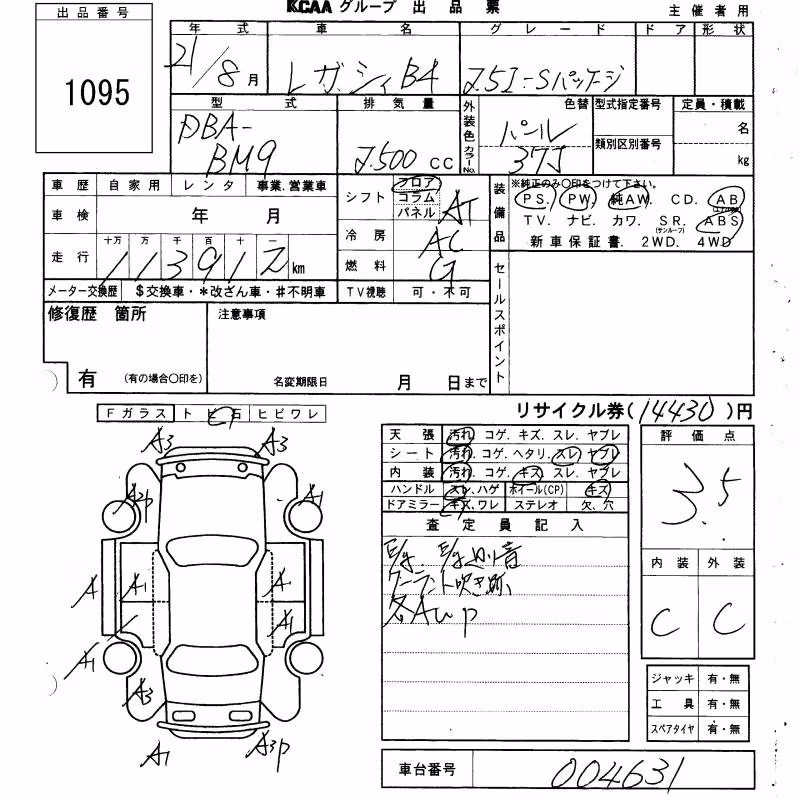 KCAA グループ 出品票
主催者用
出品番号
1095
年式 車名 グレード ドア 形状
21/8月 レガシィB4 2.5I-Sパッケージ
型式 排気量 外装色 カラーNo. 色替 型式指定番号 定員・積載
DBA-BM9 2500cc パール 37J 類別区別番号 名 kg
車歴 自家用 レンタ 事業.営業車
車検 年 月
走行 十万 万 千 百 十 一
113912km
メーター交換歴 $交換車・*改ざん車・#不明車
シフト フロア コラム パネル AT
冷房 AC
燃料 G
TV視聴 可・不可
装備品 ※純正のみ〇印をつけて下さい。
PS. PW. 純AW. CD. AB
TV. ナビ. カワ. SR.(サンルーフ) ABS
新車保証書. 2WD. 4WD
セールスポイント
修復歴 箇所
有 (有の場合〇印を)
注意事項
名変期限日 月 日まで
リサイクル券(14430)円
Fガラス トビ石 ヒビワレ
A3 A3
A2p A1
A A1 A
A1
A1
A3
A1 A3p
天張 汚れ. コゲ. キズ. スレ. ヤブレ
シート 汚れ. コゲ. ヘタリ. スレ. ヤブレ
内装 汚れ. コゲ. キズ. スレ. ヤブレ
ハンドル スレ.ハゲ ホイール(CP) キズ
ドアミラー キズ.ワレ ステレオ 欠.穴
査定員記入
E/g E/g廻り音
クーラント吹き跡
各AUP
評価点
3.5
内装 外装
C C
ジャッキ 有・無
工具 有・無
スペアタイヤ 有・無
車台番号 004631